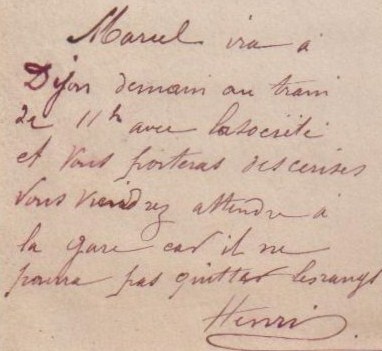 Marcel ira à
Dijon demain au train
de 11h avec la société
et vous porteras des cerises
vous viendrez attendre à
la gare car il ne
pourra pas quitter les rangs
Henri